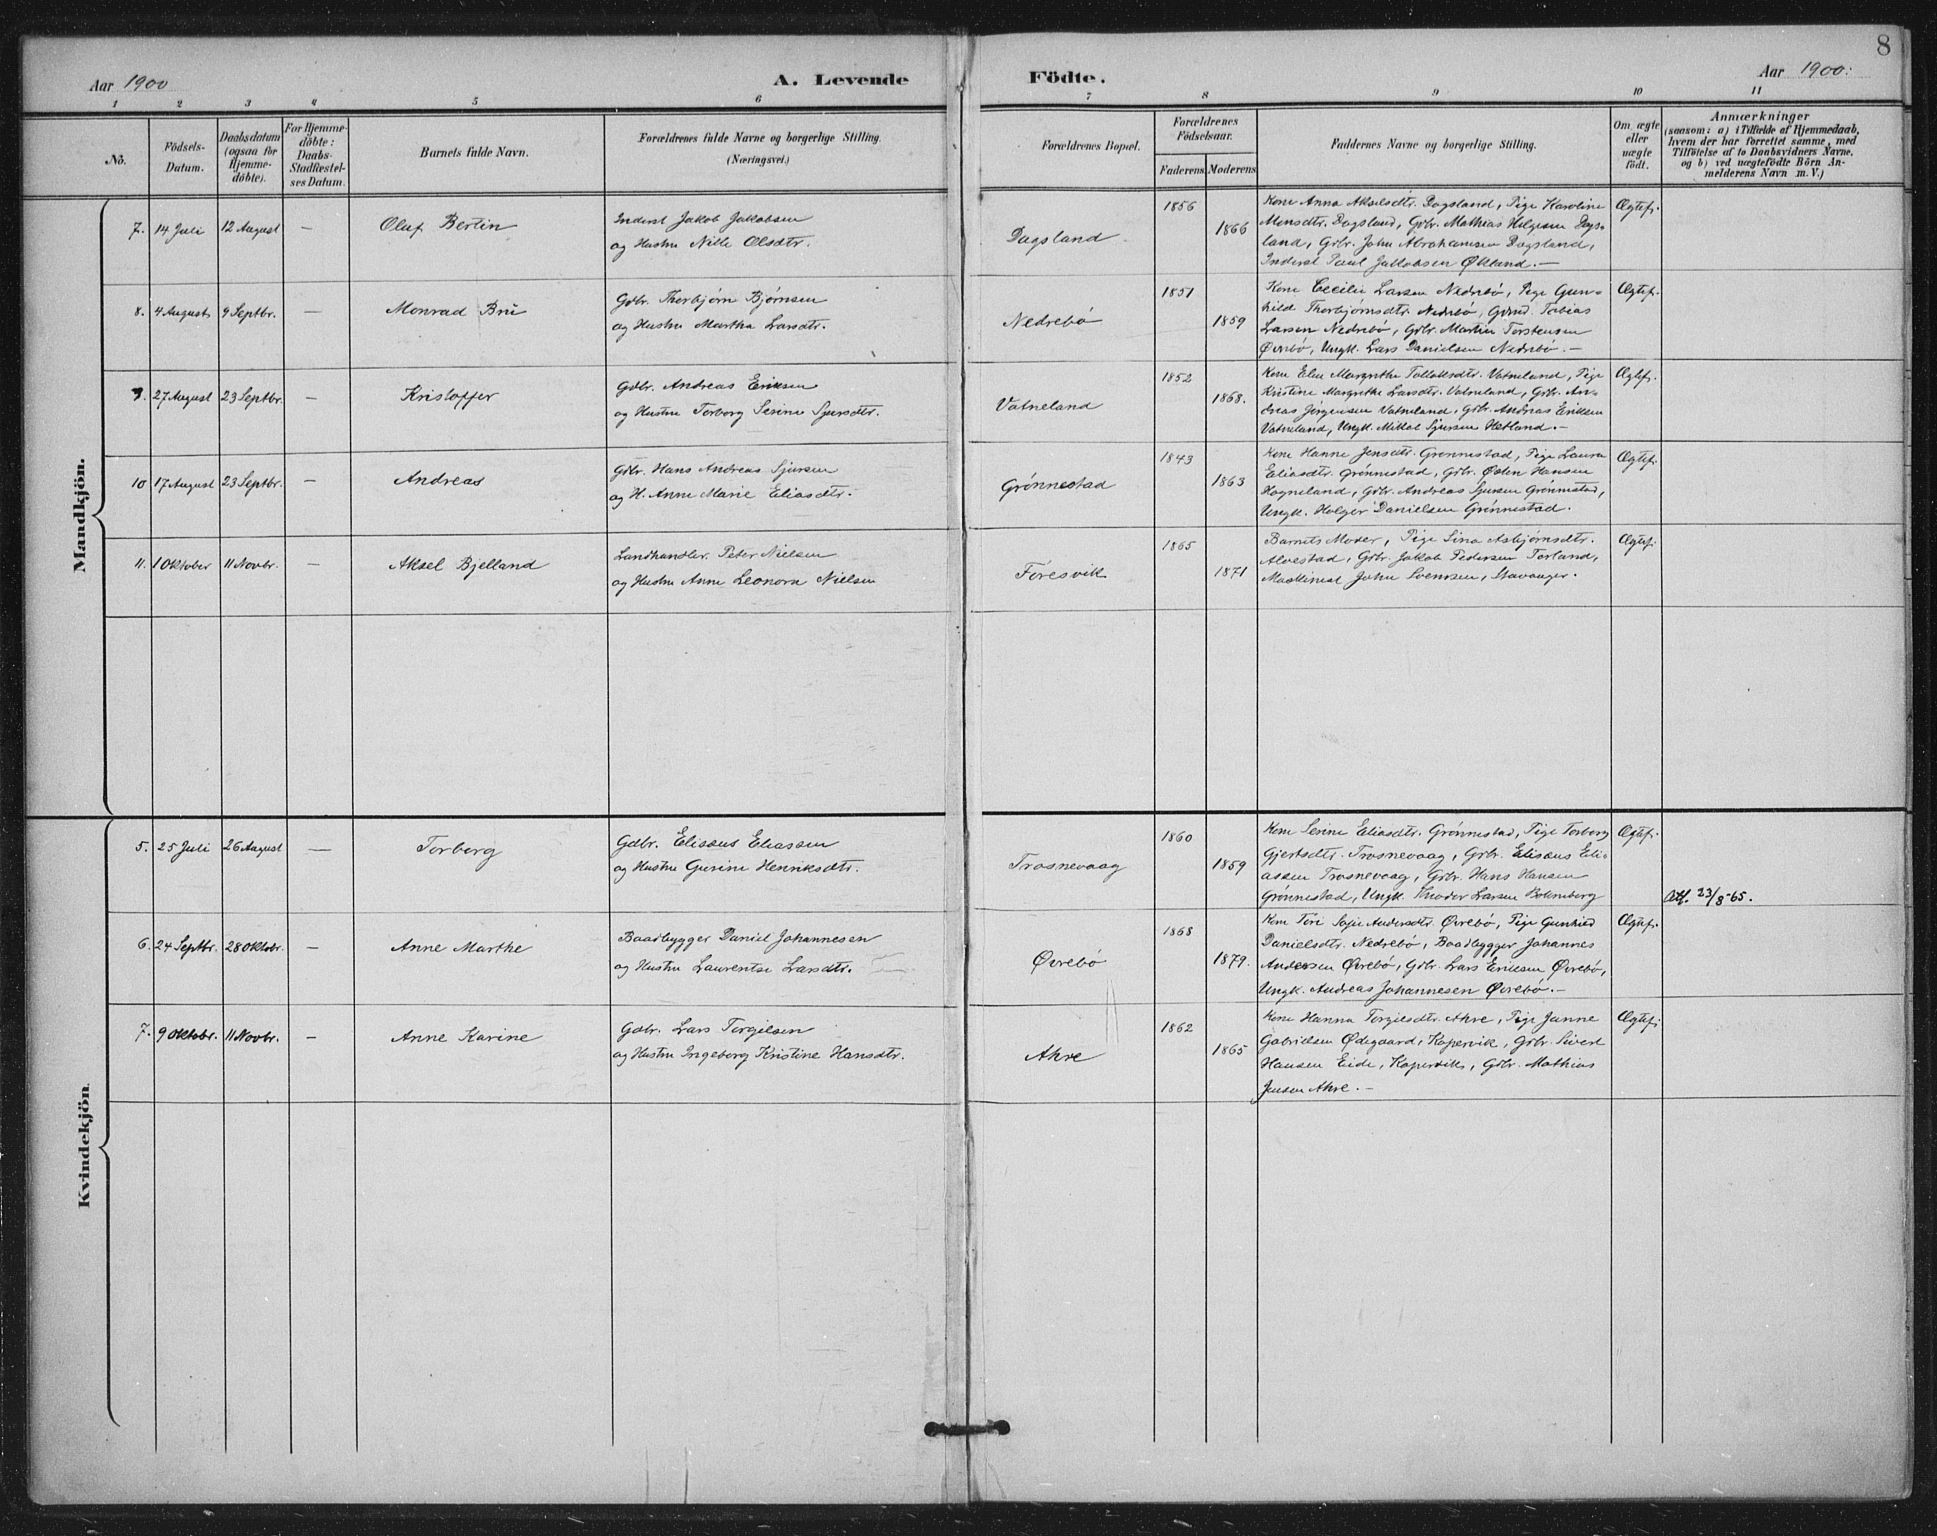 8
Aar 1900
A. Levende
Födte.
Aar 1900.
1 2 3 4 5 6 7 8 9 10 11
No.
Födsels-
Datum.
Daabsdatum
(ogsaa for
Hjemme-
döbte).
For Hjemme-
döbte:
Daabs-
Stadfæstel-
ses Datum.
Barnets fulde Navn.
Forældrenes fulde Navne og borgerlige Stilling.
(Næringsvei.)
Forældrenes Bopæl.
Forældrenes
Födselsaar.
Faderens Moderens
Faddernes Navne og borgerlige Stilling.
Om ægte
eller
uægte
födt.
Anmærkninger
(saasom: a) i Tilfælde af Hjemmedaab,
hvem der har forrettet samme, med
Tilföielse af to Daabsvidners Navne,
og b) ved uægtefödte Börn An-
melderens Navn m. V.)
Mandkjön.
7. 14 Juli 12 August — Oluf Bertin
Inderst Jakob Jakobsen
og Hustru Nille Olsdtr.
Dagsland
1856
1866
Kone Anna Akselsdtr. Dagsland, Pige Karoline
Monsdtr. Dagsland, Gdbr. Mathias Helgesen Dags-
land, Gdbr. John Abrahamsen Dagsland,
Inderst Paul Jakobsen Økland. —
Ægtef.
8. 4 August 9 Septbr. — Monrad Bru
Gdbr. Thorbjørn Bjørnsen
og Hustru Martha Larsdtr.
Nedrebö
1851
1859
Kone Cecilie Larsen Nedrebö, Pige Gun-
hild Thorbjørnsdtr. Nedrebö, Gdmd. Tobias
Larsen Nedrebö, Gdbr. Martin Torstensen
Övrebö, Ungk. Lars Danielsen Nedrebö. —
Ægtef.
9. 27 August 23 Septbr. — Kristoffer
Gdbr. Andreas Eriksen
og Hustru Torborg Serine Sjursdtr.
Vatneland
1852
1868.
Kone Elen Margrethe Tollaksdtr. Vatneland, Pige
Kristine Margrethe Larsdtr. Vatneland, Gdbr. An-
dreas Jörgensen Vatneland, Gdbr. Andreas Eriksen
Vatneland, Ungk. Mikkel Sjursen Hetland. —
Ægtef.
10 17 August 23 Septbr. — Andreas
Gdbr. Hans Andreas Sjursen
og H. Anne Marie Eliasdtr.
Grönnestad
1843
1863
Kone Hanne Jensdtr. Grönnestad, Pige Laura
Eliasdtr. Grönnestad, Gdbr. Östen Hansen
Hogneland, Gdbr. Andreas Sjursen Grönnestad,
Ungk. Holger Danielsen Grönnestad.
Ægtef.
11. 1 Oktober 11 Novbr. — Aksel Bjelland
Landhandler. Peter Nielsen
og Hustru Anne Leonora Nielsen
Föresvik
1865
1871
Barnets Moder, Pige Sina Asbjörnsdtr.
Alvestad, Gdbr. Jakob Pedersen Torland,
Maskinist John Svensen, Stavanger.
Ægtef.
Kvindekjön
5. 25 Juli 26 August — Torborg
Gdbr. Elisæus Eliassen
og Hustru Gurine Henriksdtr.
Trosnevaag
1860
1859
Kone Serine Eliasdtr. Grönnestad, Pige Torborg
Gjertsdtr. Trosnevaag, Gdbr. Elisæus Eli-
assen Trosnevaag, Gdbr. Hans Hansen
Grönnestad, Ungk. Larsen
Ægtef.
Att. 23/8-65.
6. 24 Septbr. 28 Oktobr. — Anne Marthe
Baadbygger Daniel Johannesen
og Hustru Laurentse Larsdtr.
Övrebö
1868
1879.
Kone Tori Sofie Andersdtr. Övrebö, Pige Gunhild
Danielsdtr. Nedrebö, Baadbygger Johannes
Andersen Övrebö, Gdbr. Lars Eriksen Övrebö,
Ungk. Andreas Johannesen Övrebö. —
Ægtef.
7. 9 Oktobr. 11 Novbr. — Anne Karine
Gdbr. Lars Torgilsen
og Hustru Ingeborg Kristine Hansdtr.
Ahre
1862
1865
Kone Hanna Torgilsdtr. Ahre, Pige Janne
Gabrielsen Ödegaard, Kopervik, Gdbr. Sivert
Hansen Eide, Kopervik, Gdbr. Mathias
Jensen Ahre. —
Ægtef.